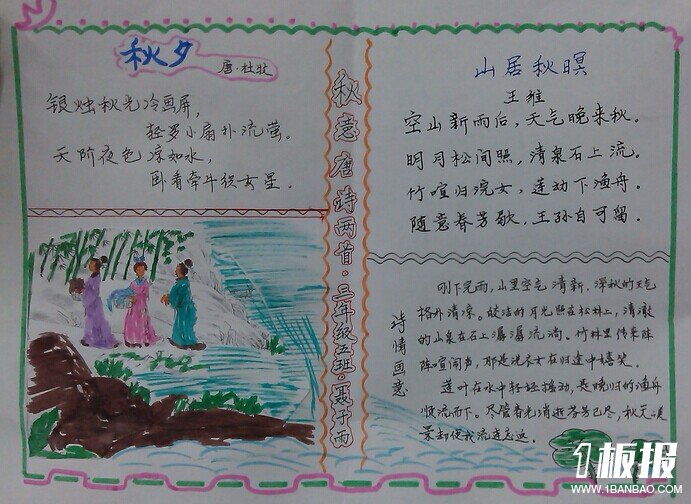 秋夕
唐·杜牧
银烛秋光冷画屏，
轻罗小扇扑流萤。
天阶夜色凉如水，
卧看牵牛织女星.
秋意唐诗两首·三年级五班·聂子雨
山居秋暝
王维
空山新雨后，天气晚来秋。
明月松间照，清泉石上流。
竹喧归浣女，莲动下渔舟。
随意春芳歇，王孙自可留。
诗情画意
刚下完雨，山里空气清新，深秋的天气
格外清凉。皎洁的月光照在松林上，清澈
的山泉在石上潺潺流淌。竹林里传来阵
阵喧闹声，那是洗衣女在归途中嬉笑。
莲叶在水中轻轻摇动，是晚归的渔舟
顺流而下。尽管春光消逝芳芳已尽，秋天
景却使我流连忘返。
1板报
WWW.1BANBAO.COM